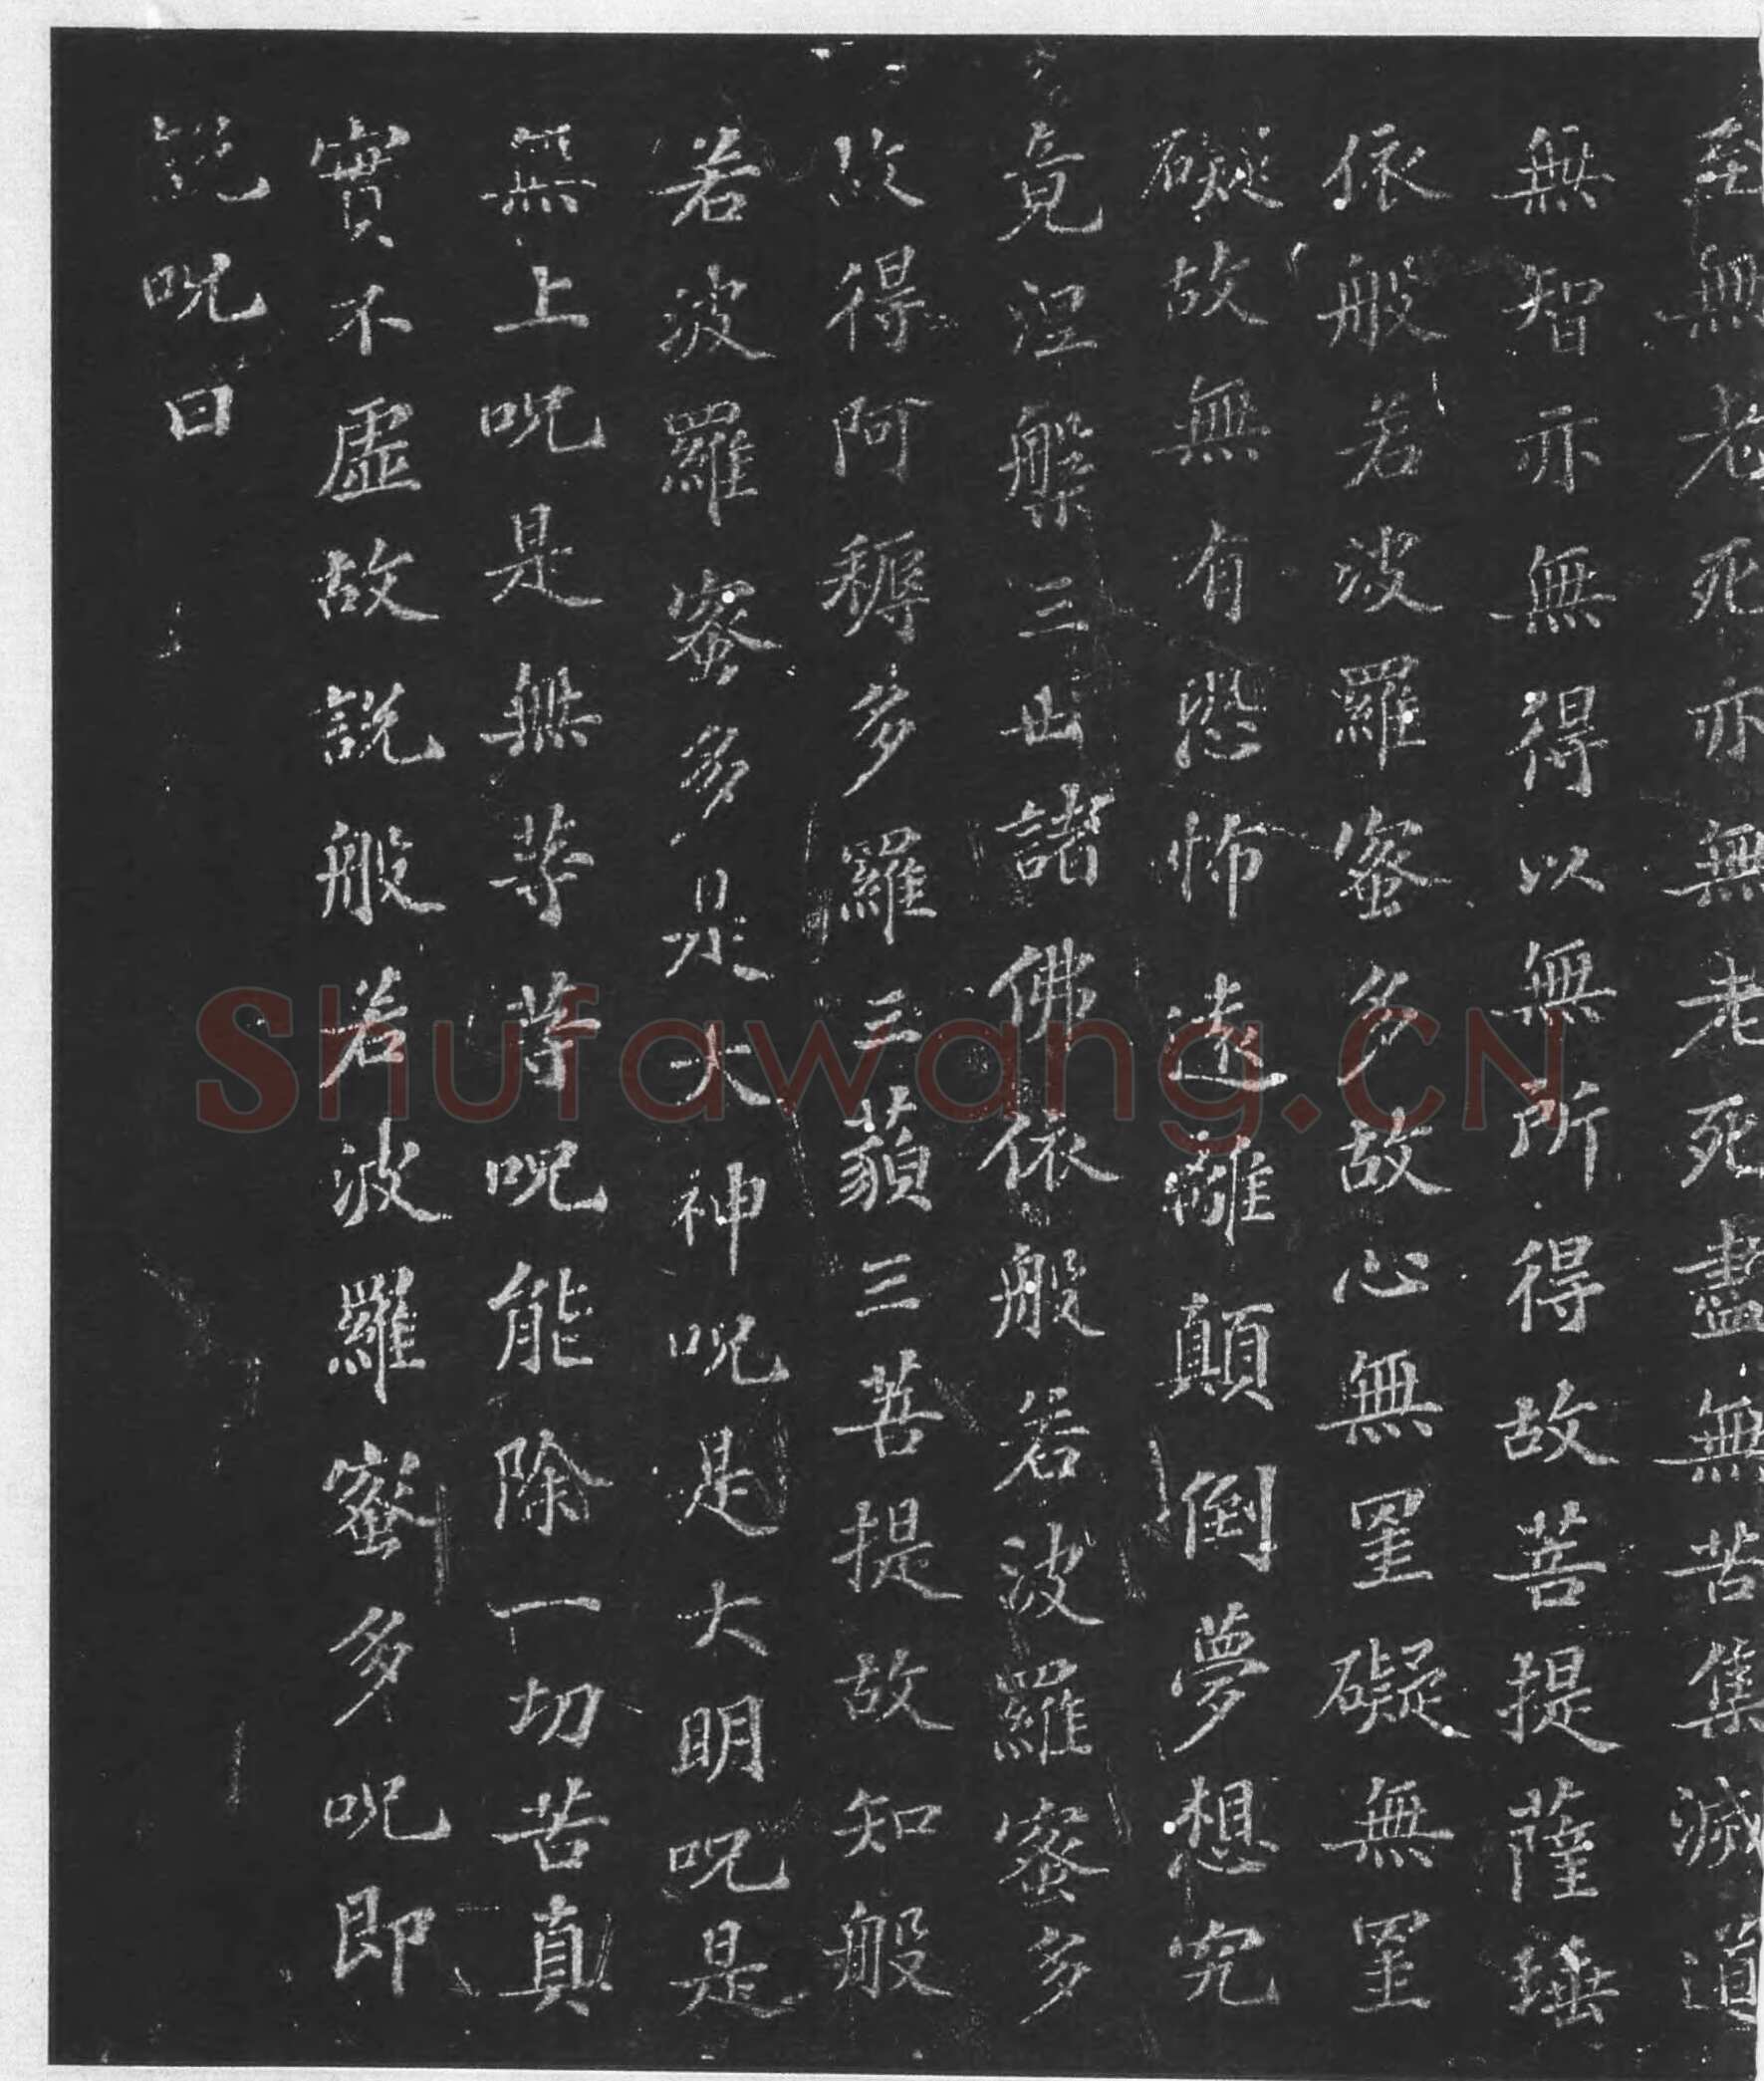 至無老死亦無老死盡無苦集滅道
無智亦無得以無所得故菩提薩埵
依般若波羅蜜多故心無罣礙無罣
礙故無有恐怖遠離顛倒夢想究
竟涅槃三世諸佛依般若波羅蜜多
故得阿耨多羅三藐三菩提故知般
若波羅蜜多是大神呪是大明呪是
無上呪是無等等呪能除一切苦真
實不虛故說般若波羅蜜多呪即
說呪曰
Shufawang.CN